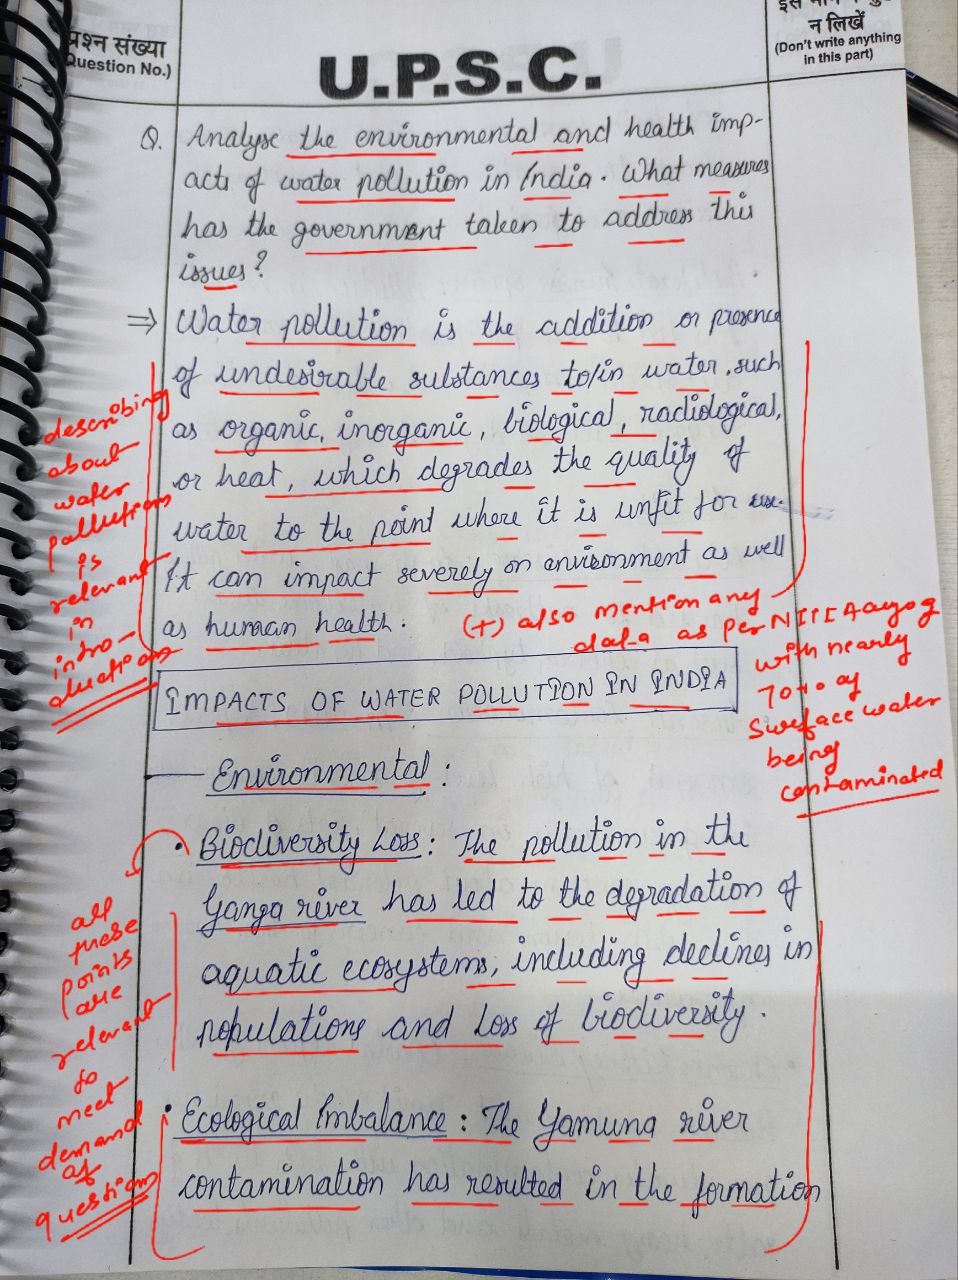 प्रश्न संख्या
(Question No.)
U.P.S.C.
न लिखें
(Don't write anything
in this part)
Q. Analyse the environmental and health imp-
acts of water pollution in India. What measures
has the government taken to address this
issues?
⇒ Water pollution is the addition or presence
of undesirable substances to/in water, such
as organic, inorganic, biological, radiological,
or heat, which degrades the quality of
water to the point where it is unfit for use.
It can impact severely on environment as well
as human health.
describing
about
water
pollution
is
relevant
in
intro-
ductions
(+) also mention any
data as per NITI Aayog
with nearly
70% of
surface water
being
contaminated
IMPACTS OF WATER POLLUTION IN INDIA
Environmental :
• Biodiversity Loss : The pollution in the
Ganga river has led to the degradation of
aquatic ecosystems, including declines in
populations and loss of biodiversity.
• Ecological Imbalance : The Yamuna river
contamination has resulted in the formation
all
these
points
are
relevant
to
meet
demand
of
questions